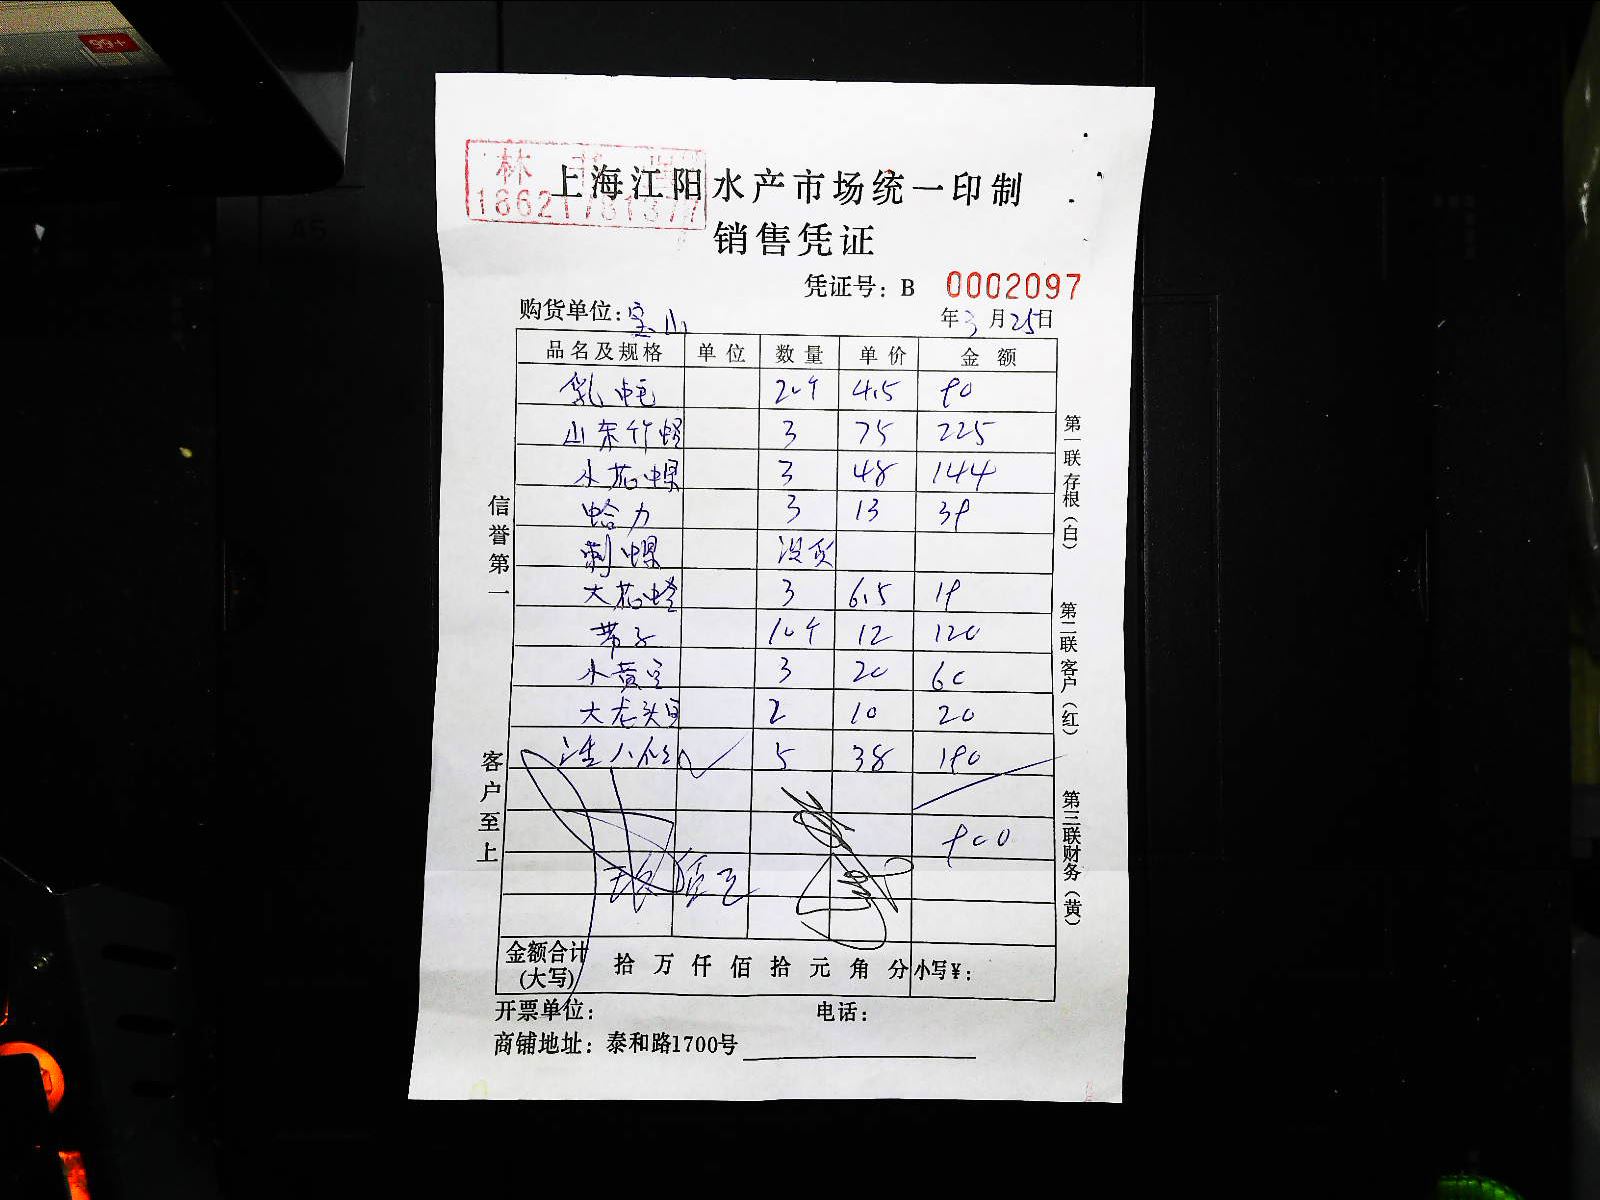 99+
A5
林
18621781377
上海江阳水产市场统一印制
销售凭证
凭证号：B 0002097
购货单位：宝山 年3月25日
品名及规格 单位 数量 单价 金额
乳蚝 20个 4.5 90
山东竹蛏 3 75 225
小花螺 3 48 144
蛤力 3 13 39
刺螺 没货
大花蛤 3 6.5 19
带子 10个 12 120
小黄豆 3 20 60
大老头 2 10 20
活八 5 38 190
900
金额合计(大写) 拾万仟佰拾元角分 小写¥：
开票单位： 电话：
商铺地址：泰和路1700号
信誉第一
客户至上
第一联存根（白）
第二联客户（红）
第三联财务（黄）